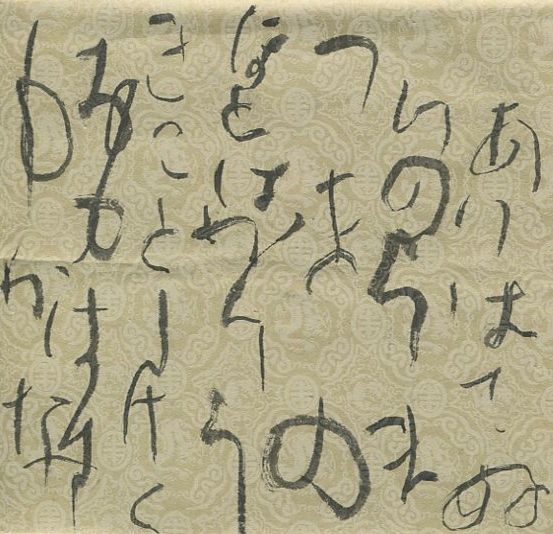 ありはてぬ
いのちま
つまの
ほとはかりう
きことしけく
おもはす
もかな